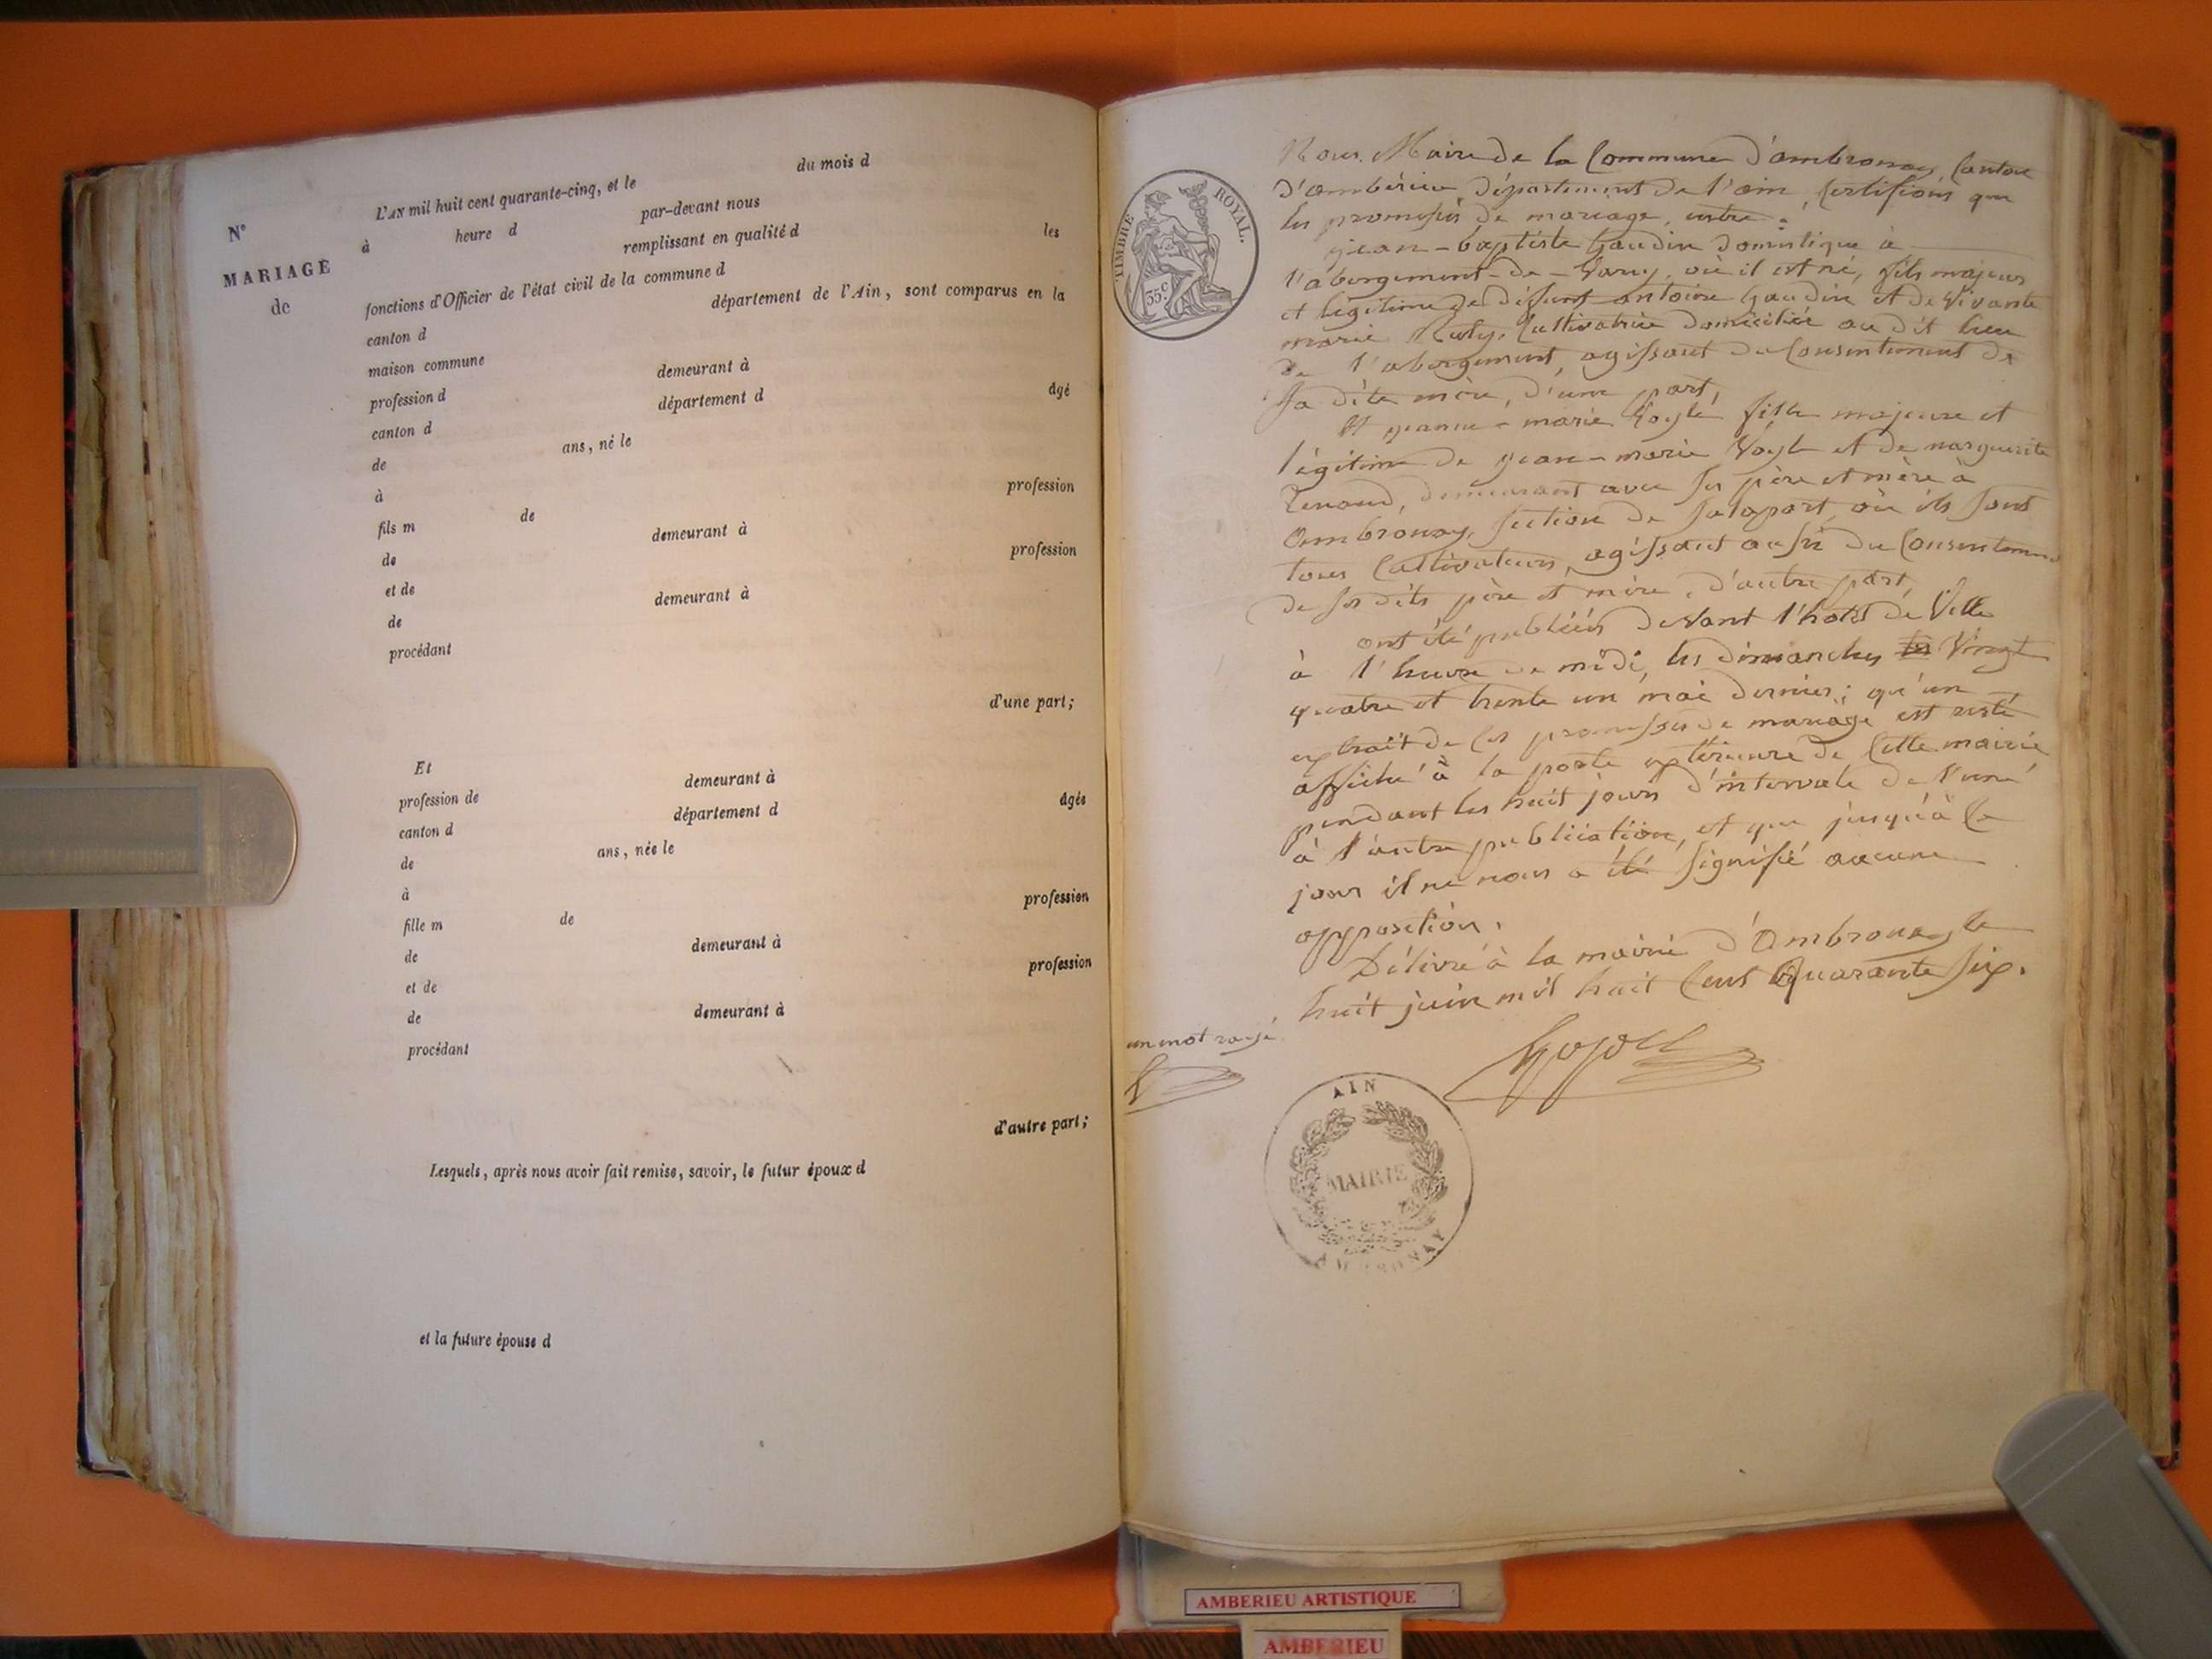 L'AN mil huit cent quarante-cinq, et le du mois d
N° à heure d par-devant nous
MARIAGE remplissant en qualité d les
de fonctions d'Officier de l'état civil de la commune d
canton d département de l'Ain, sont comparus en la
maison commune
profession d demeurant à
canton d département d âgé
de ans, né le
à
fils m de profession
de demeurant à
et de profession
de demeurant à
procédant
d'une part;
Et
profession de demeurant à
canton d département d âgée
de ans, née le
à
fille m de profession
de demeurant à
et de profession
de demeurant à
procédant
d'autre part;
Lesquels, après nous avoir fait remise, savoir, le futur époux d
et la future épouse d
TIMBRE ROYAL.
35 c.
Nous Maire de la Commune d'ambronay, Canton
d'ambérieu département de l'ain, Certifions que
les promesses de mariage, entre :
jean-baptiste Gaudin domestique à
l'abergement-de-Varey, où il est né, fils majeur
et légitime de défunt antoine Gaudin et de Vivante
marie Cultivatrice domiciliée au dit lieu
de l'abergement, agissant du Consentement de
Sa dite mère, d'une part,
Et jeanne-marie Vogle fille majeure et
légitime de jean-marie Vogle et de marguerite
Renaud, demeurant avec ses père et mère à
Ambronay, Section de Salaport, où ils sont
tous Cultivateurs, agissant aussi du Consentement
de ses dits père et mère, d'autre part,
ont été publiées devant l'hotel de Ville
à l'heure de midi, les dimanches les Vingt
quatre et trente un mai dernier; qu'un
extrait de ces promesses de mariage est resté
affiché à la porte extérieure de Cette mairie
pendant les huit jours d'intervale de l'une
à l'autre publication, et que jusqu'à Ce
jour il ne nous a été signifié aucune
opposition.
Délivré à la mairie d'Ambronay le
huit juin mil huit Cent Quarante six.
un mot rayé
AIN
MAIRIE
AMBRONAY
AMBERIEU ARTISTIQUE
AMBERIEU